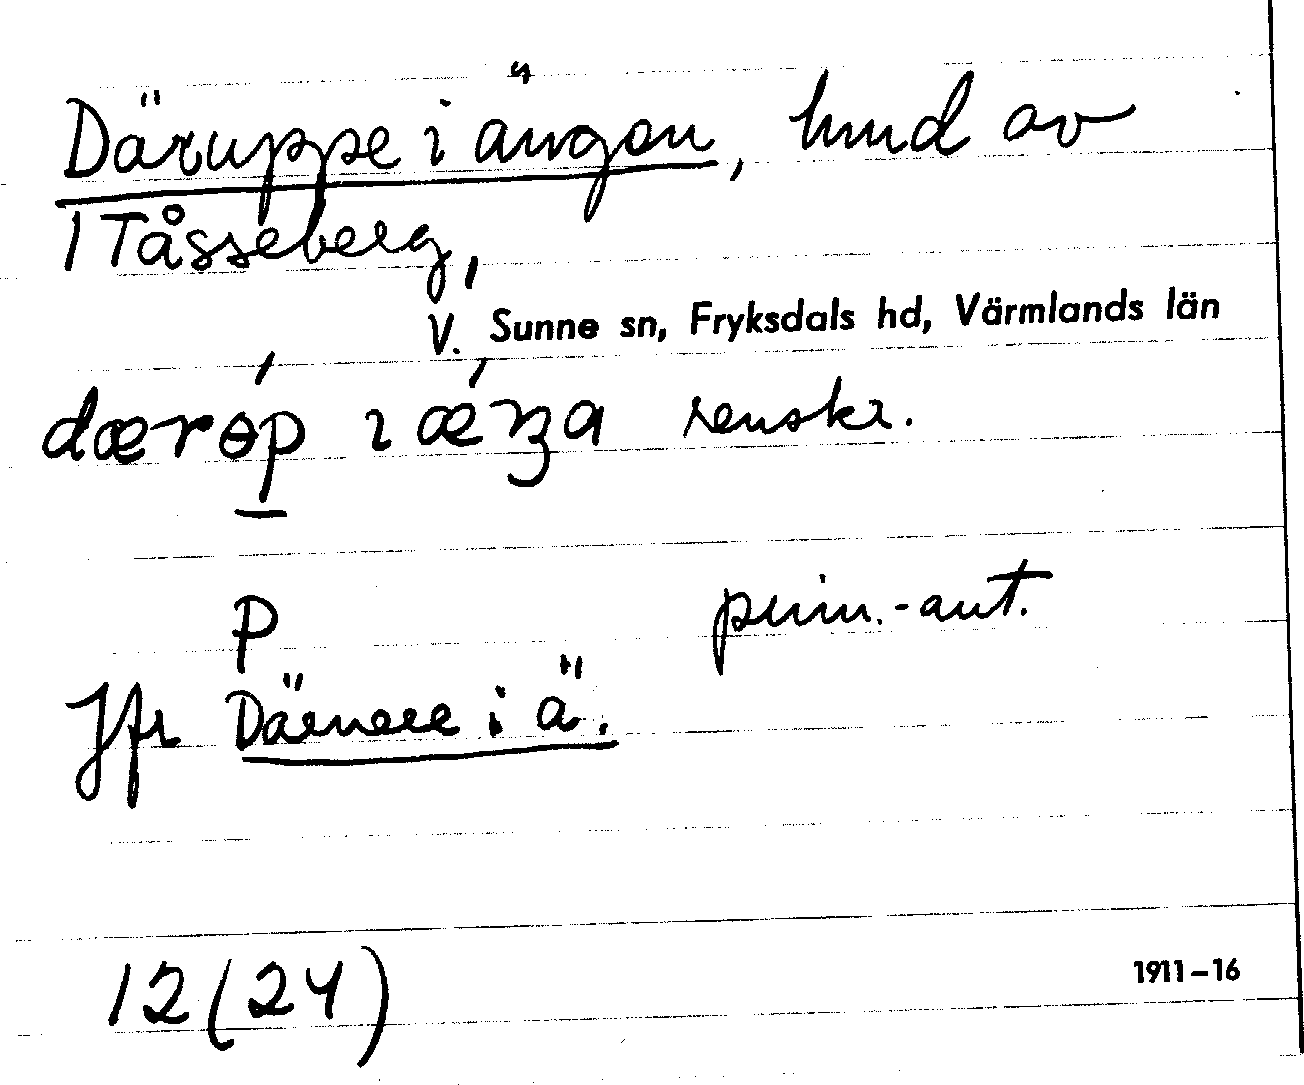 Däruppe i ängen, hmd av
1 Tåsseberg,
V. Sunne sn, Fryksdals hd, Värmlands län
dærɵ́p ɩ ǽŋa renskr.
P prim.-ant.
Jfr Därnere i ä.
12(24)
1911–16